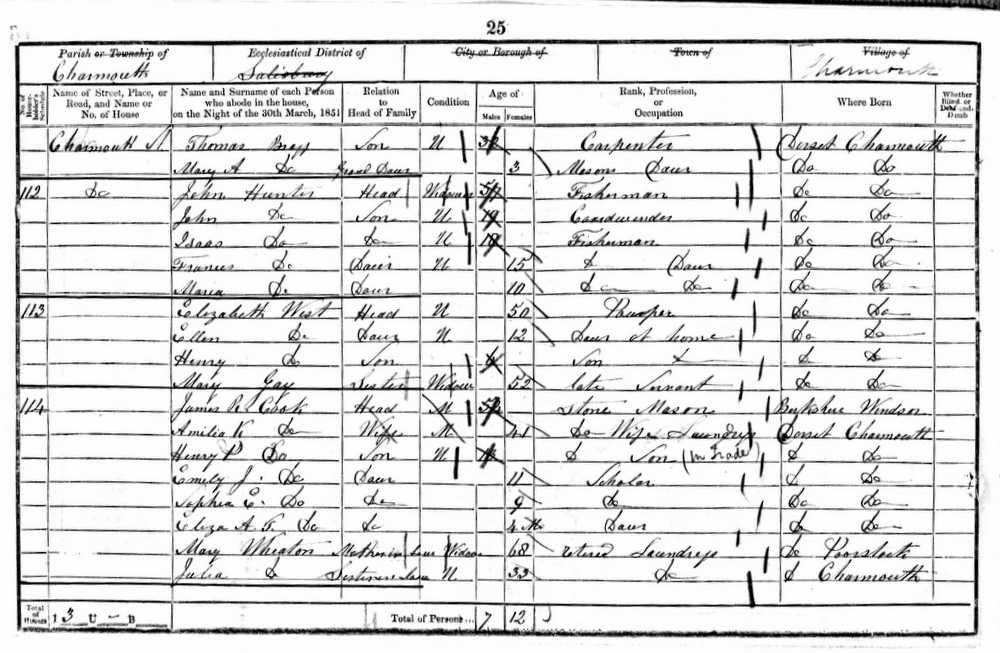 25
Parish or Township of Ecclesiastical District of City or Borough of Town of Village of
Charmouth Salisbury Charmouth
No. of Householder's Schedule Name of Street, Place, or Road, and Name or No. of House Name and Surname of each Person who abode in the house, on the Night of the 30th March, 1851 Relation to Head of Family Condition Age of Males Females Rank, Profession, or Occupation Where Born Whether Blind, or Deaf-and-Dumb
Charmouth Thomas Bragg Son U Carpenter Dorset Charmouth
Mary A Do Grand Daur 3 Masons Daur Do Do
112 Do John Hunter Head Widower Fisherman Do Do
John Do Son U 19 Do Do
Isaac Do Do U Fisherman Do Do
Frances Do Daur U 15 Do Daur Do Do
Maria Do Daur 10 Do Do Do Do
113 Elizabeth West Head U 50 Pauper Do Do
Ellen Do Daur U 12 Daur at home Do Do
Henry Do Son 6 Son Do Do Do
Mary Gay Sister Widow 52 late Servant Do Do
114 James R Cook Head M Stone Mason Berkshire Windsor
Amilia K Do Wife M 41 Do Wife Laundress Dorset Charmouth
Henry P Do Son U Do Son (In Trade) Do Do
Emily J. Do Daur 11 Scholar Do Do
Sophia E. Do Do 9 Do Do Do
Eliza A Do Do 4 M Daur Do Do
Mary Wheaton Mother in Law Widow 68 retired Laundress Do Poorstock
Julia Do Sister in Law U 33 Do Do Charmouth
Total of Houses 13 U — B Total of Persons... 7 12